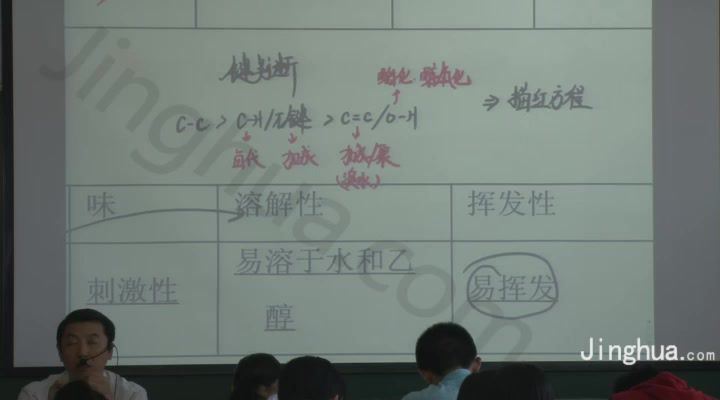 键判断
酯化 催氧化
C-C > C-H/π键 > C=C/O-H ⇒ 描红方程
取代 加成 加成/聚
(溴水)
味 溶解性 挥发性
刺激性 易溶于水和乙醇 易挥发
Jinghua.com
Jinghua.com